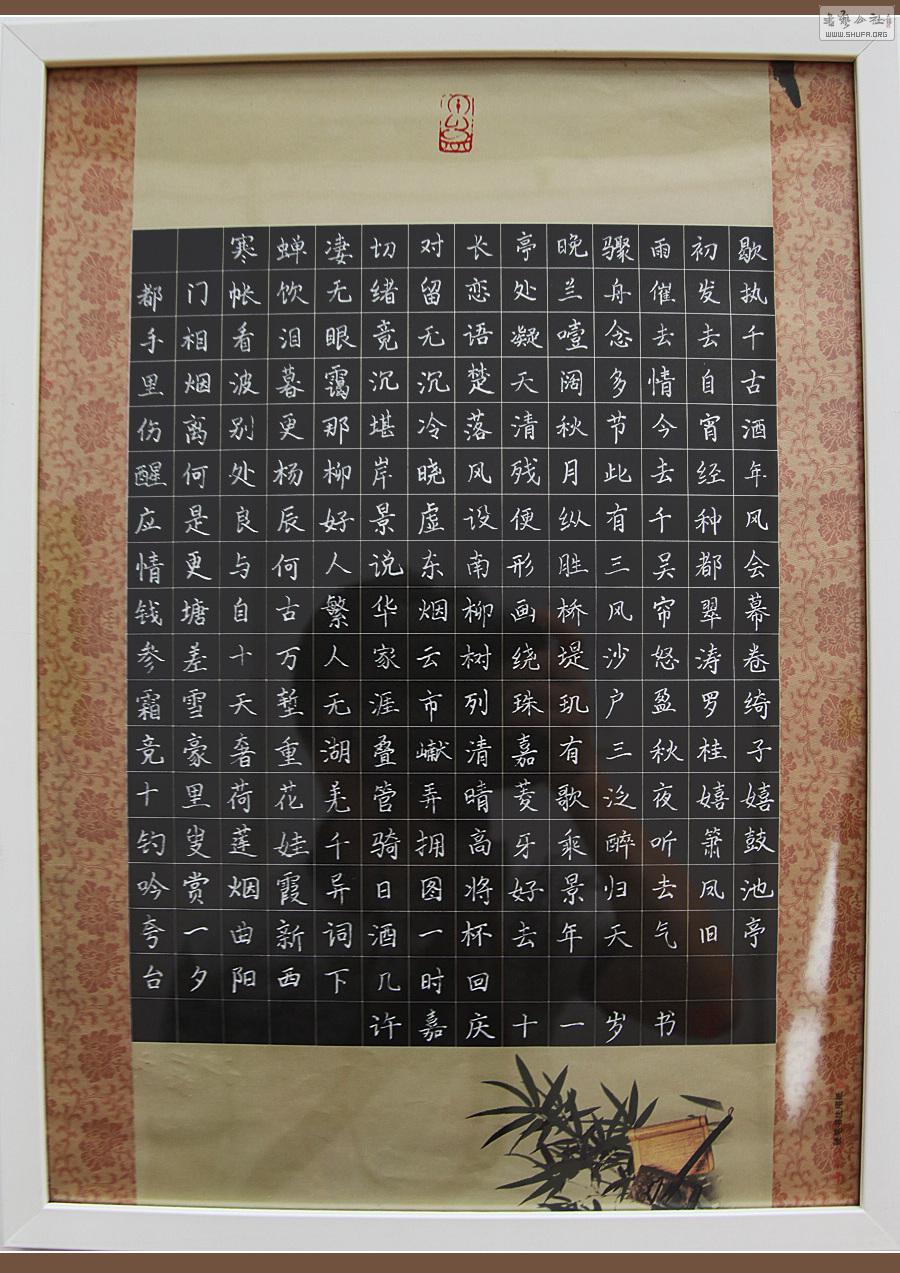 寒蝉凄切对长亭晚骤雨初歇
都门帐饮无绪留恋处兰舟催发执
手相看泪眼竟无语凝噎念去去千
里烟波暮霭沉沉楚天阔多情自古
伤离别更那堪冷落清秋节今宵酒
醒何处杨柳岸晓风残月此去经年
应是良辰好景虚设便纵有千种风
情更与何人说东南形胜三吴都会
钱塘自古繁华烟柳画桥风帘翠幕
参差十万人家云树绕堤沙怒涛卷
霜雪天堑无涯市列珠玑户盈罗绮
竞豪奢重湖叠巘清嘉有三秋桂子
十里荷花羌管弄晴菱歌泛夜嬉嬉
钓叟莲娃千骑拥高牙乘醉听箫鼓
吟赏烟霞异日图将好景归去凤池
夸一曲新词酒一杯去年天气旧亭
台夕阳西下几时回
许嘉庆十一岁书
WWW.SHUFA.ORG